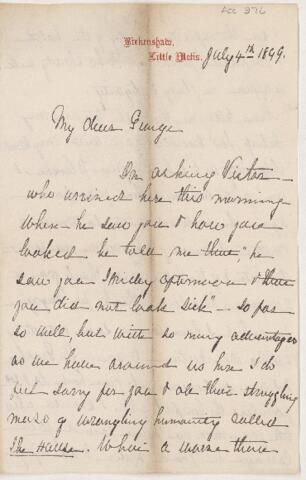 Acc 376
Birkenshaw,
Little Metis.
July 4th 1899.
My dear George
On asking Victor
who arrived here this morning
where he saw you & how you
looked he told me that "he
saw you Friday afternoon & that
you did not look sick" - so far
so well, but with so many advantages
as we have around us here I do
feel sorry for you & all that struggling
mass of wrangling humanity called
The House.